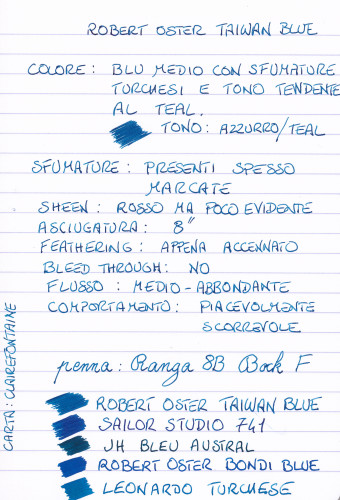 ROBERT OSTER TAIWAN BLUE
COLORE: BLU MEDIO CON SFUMATURE
TURCHESI E TONO TENDENTE
AL TEAL.
TONO: AZZURRO/TEAL
SFUMATURE: PRESENTI SPESSO
MARCATE
SHEEN: ROSSO MA POCO EVIDENTE
ASCIUGATURA: 8"
FEATHERING: APPENA ACCENNATO
BLEED THROUGH: NO
FLUSSO: MEDIO-ABBONDANTE
COMPORTAMENTO: PIACEVOLMENTE
SCORREVOLE
penna: Ranga 8B Bock F
ROBERT OSTER TAIWAN BLUE
SAILOR STUDIO 741
JH BLEU AUSTRAL
ROBERT OSTER BONDI BLUE
LEONARDO TURCHESE
CARTA: CLAIREFONTAINE